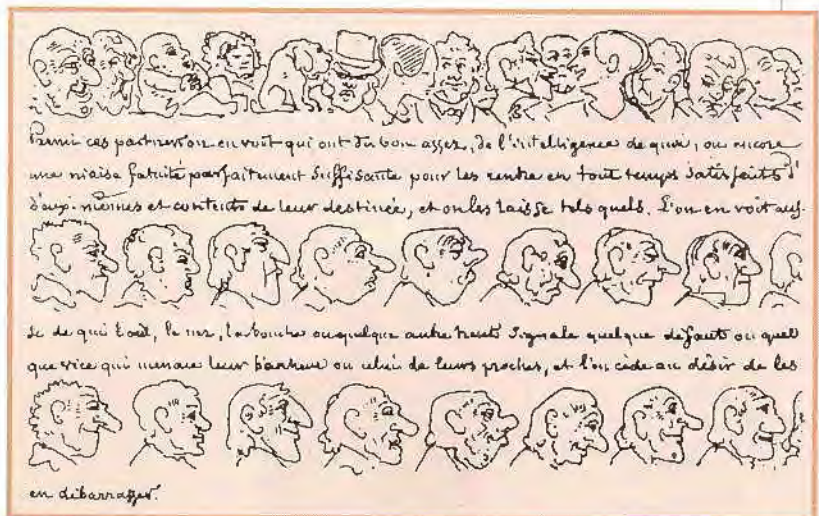 Parmi ces part on en voit qui ont du bon assez, de l'intelligence de quoi, ou encore
une niaise fatuité parfaitement suffisante pour les rendre en tout temps satisfaits d'
d'eux-mêmes et contents de leur destinée, et on les laisse tels quels. L'on en voit aus-
si de qui l'œil, le nez, la bouche ou quelque autre trait signale quelque défaut ou quel
que vice qui menace leur bonheur ou celui de leurs proches, et l'on cède au désir de les
en débarrasser.